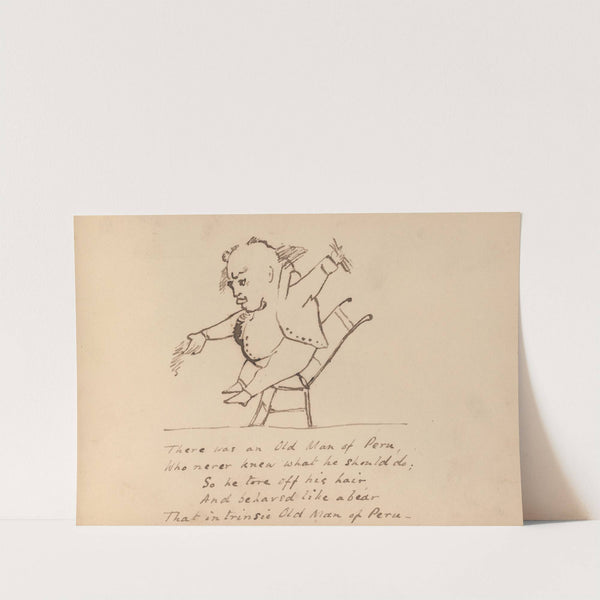 There was an Old Man of Peru,
Who never knew what he should do;
So he tore off his hair
And behaved like a bear
That intrinsic Old Man of Peru_